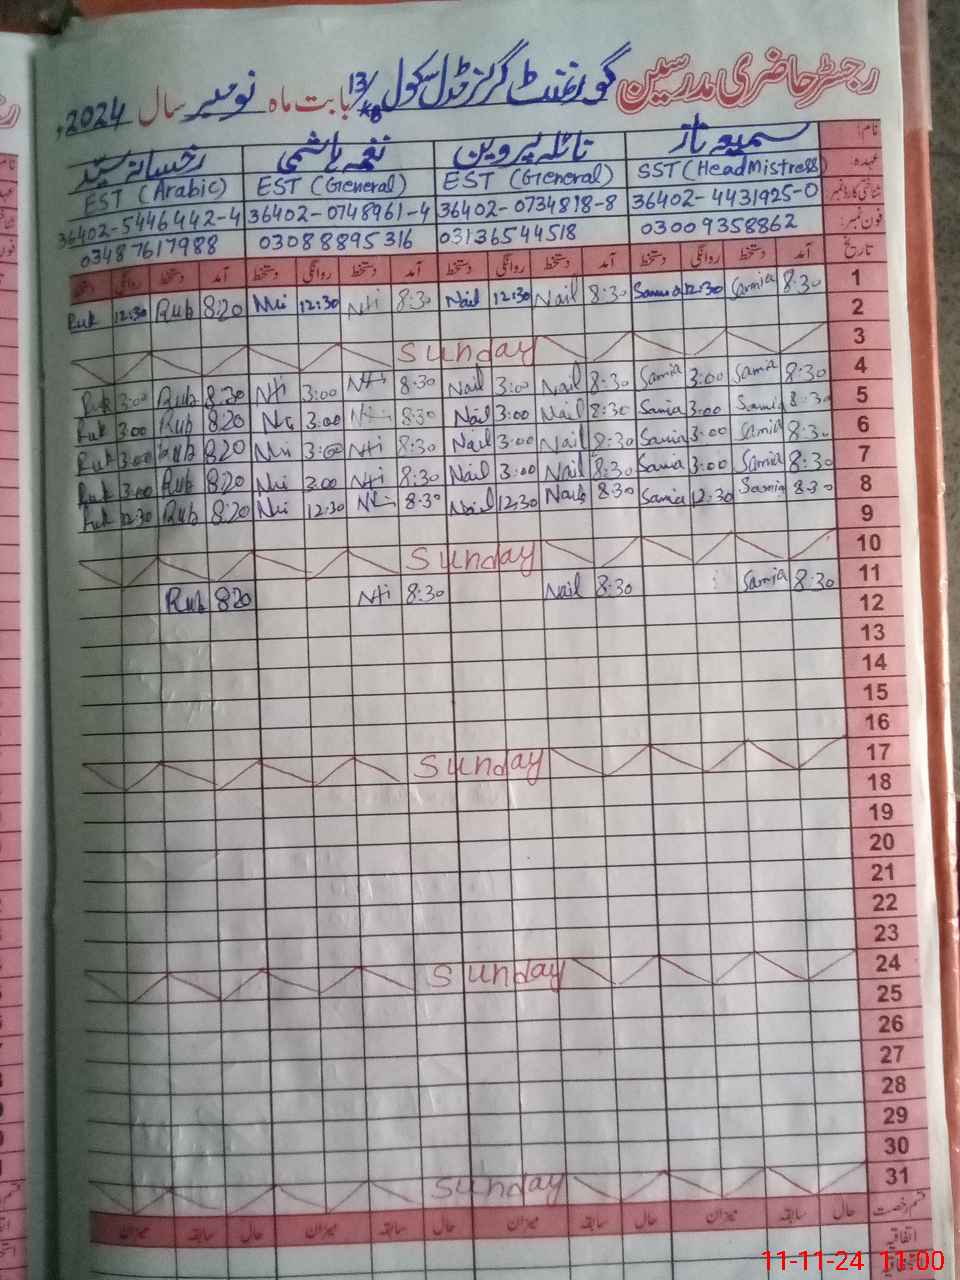 رجسٹر حاضری مدرسین گورنمنٹ گرلز مڈل سکول 13/ بابت ماہ نومبر سال 2024ء
نام: سمیعہ ناز نائلہ پروین نغمہ ہاشمی رخسانہ سید
عہدہ: SST (HeadMistress) EST (General) EST (General) EST (Arabic)
شناختی کارڈ نمبر 36402-4431925-0 36402-0734818-8 36402-0748961-4 36402-5446442-4
فون نمبر: 03009358862 03136544518 03088895316 03487617988
تاریخ آمد دستخط روانگی دستخط آمد دستخط روانگی دستخط آمد دستخط روانگی دستخط آمد دستخط روانگی دستخط
1 8:30 Samia 12:30 Samia 8:30 Nail 12:30 Nail 8:30 12:30 8:20 Rub 12:30 Ruk
2
3 Sunday
4 8:30 Samia 3:00 Samia 8:30 Nail 3:00 Nail 8:30 3:00 8:20 Rub 3:00 Ruk
5 8:30 Samia 3:00 Samia 8:30 Nail 3:00 Nail 8:30 3:00 8:20 Rub 3:00 Ruk
6 8:30 Samia 3:00 Samia 8:30 Nail 3:00 Nail 8:30 3:00 8:20 Rub 3:00 Ruk
7 8:30 Samia 3:00 Samia 8:30 Nail 3:00 Nail 8:30 3:00 8:20 Rub 3:00 Ruk
8 8:30 Samia 12:30 Samia 8:30 Nail 12:30 Nail 8:30 12:30 8:20 Rub 12:30 Ruk
9
10 Sunday
11 8:30 Samia 8:30 Nail 8:30 8:20 Rub
12
13
14
15
16
17 Sunday
18
19
20
21
22
23
24 Sunday
25
26
27
28
29
30
31 Sunday
قسم رخصت حال سابقہ میزان حال سابقہ میزان حال سابقہ میزان حال سابقہ میزان
اتفاقیہ
11-11-24 11:00